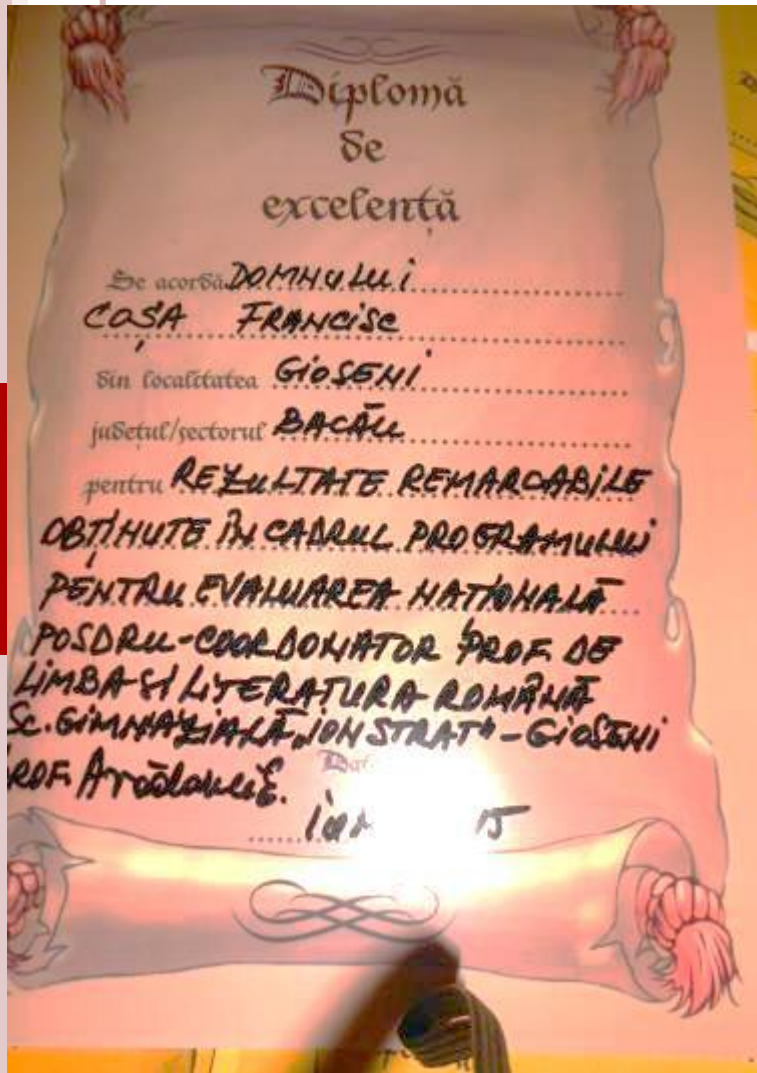 Diplomă
de
excelență
Se acordă DOMNULUI
COȘA FRANCISC
din localitatea GIOSENI
județul/sectorul BACĂU
pentru REZULTATE REMARCABILE
OBȚINUTE ÎN CADRUL PROGRAMULUI
PENTRU EVALUAREA NAȚIONALĂ
POSDRU-COORDONATOR PROF. DE
LIMBA ȘI LITERATURA ROMÂNĂ
SC. GIMNAZIALĂ „ION STRAT" - GIOSENI
PROF.
Dat
15